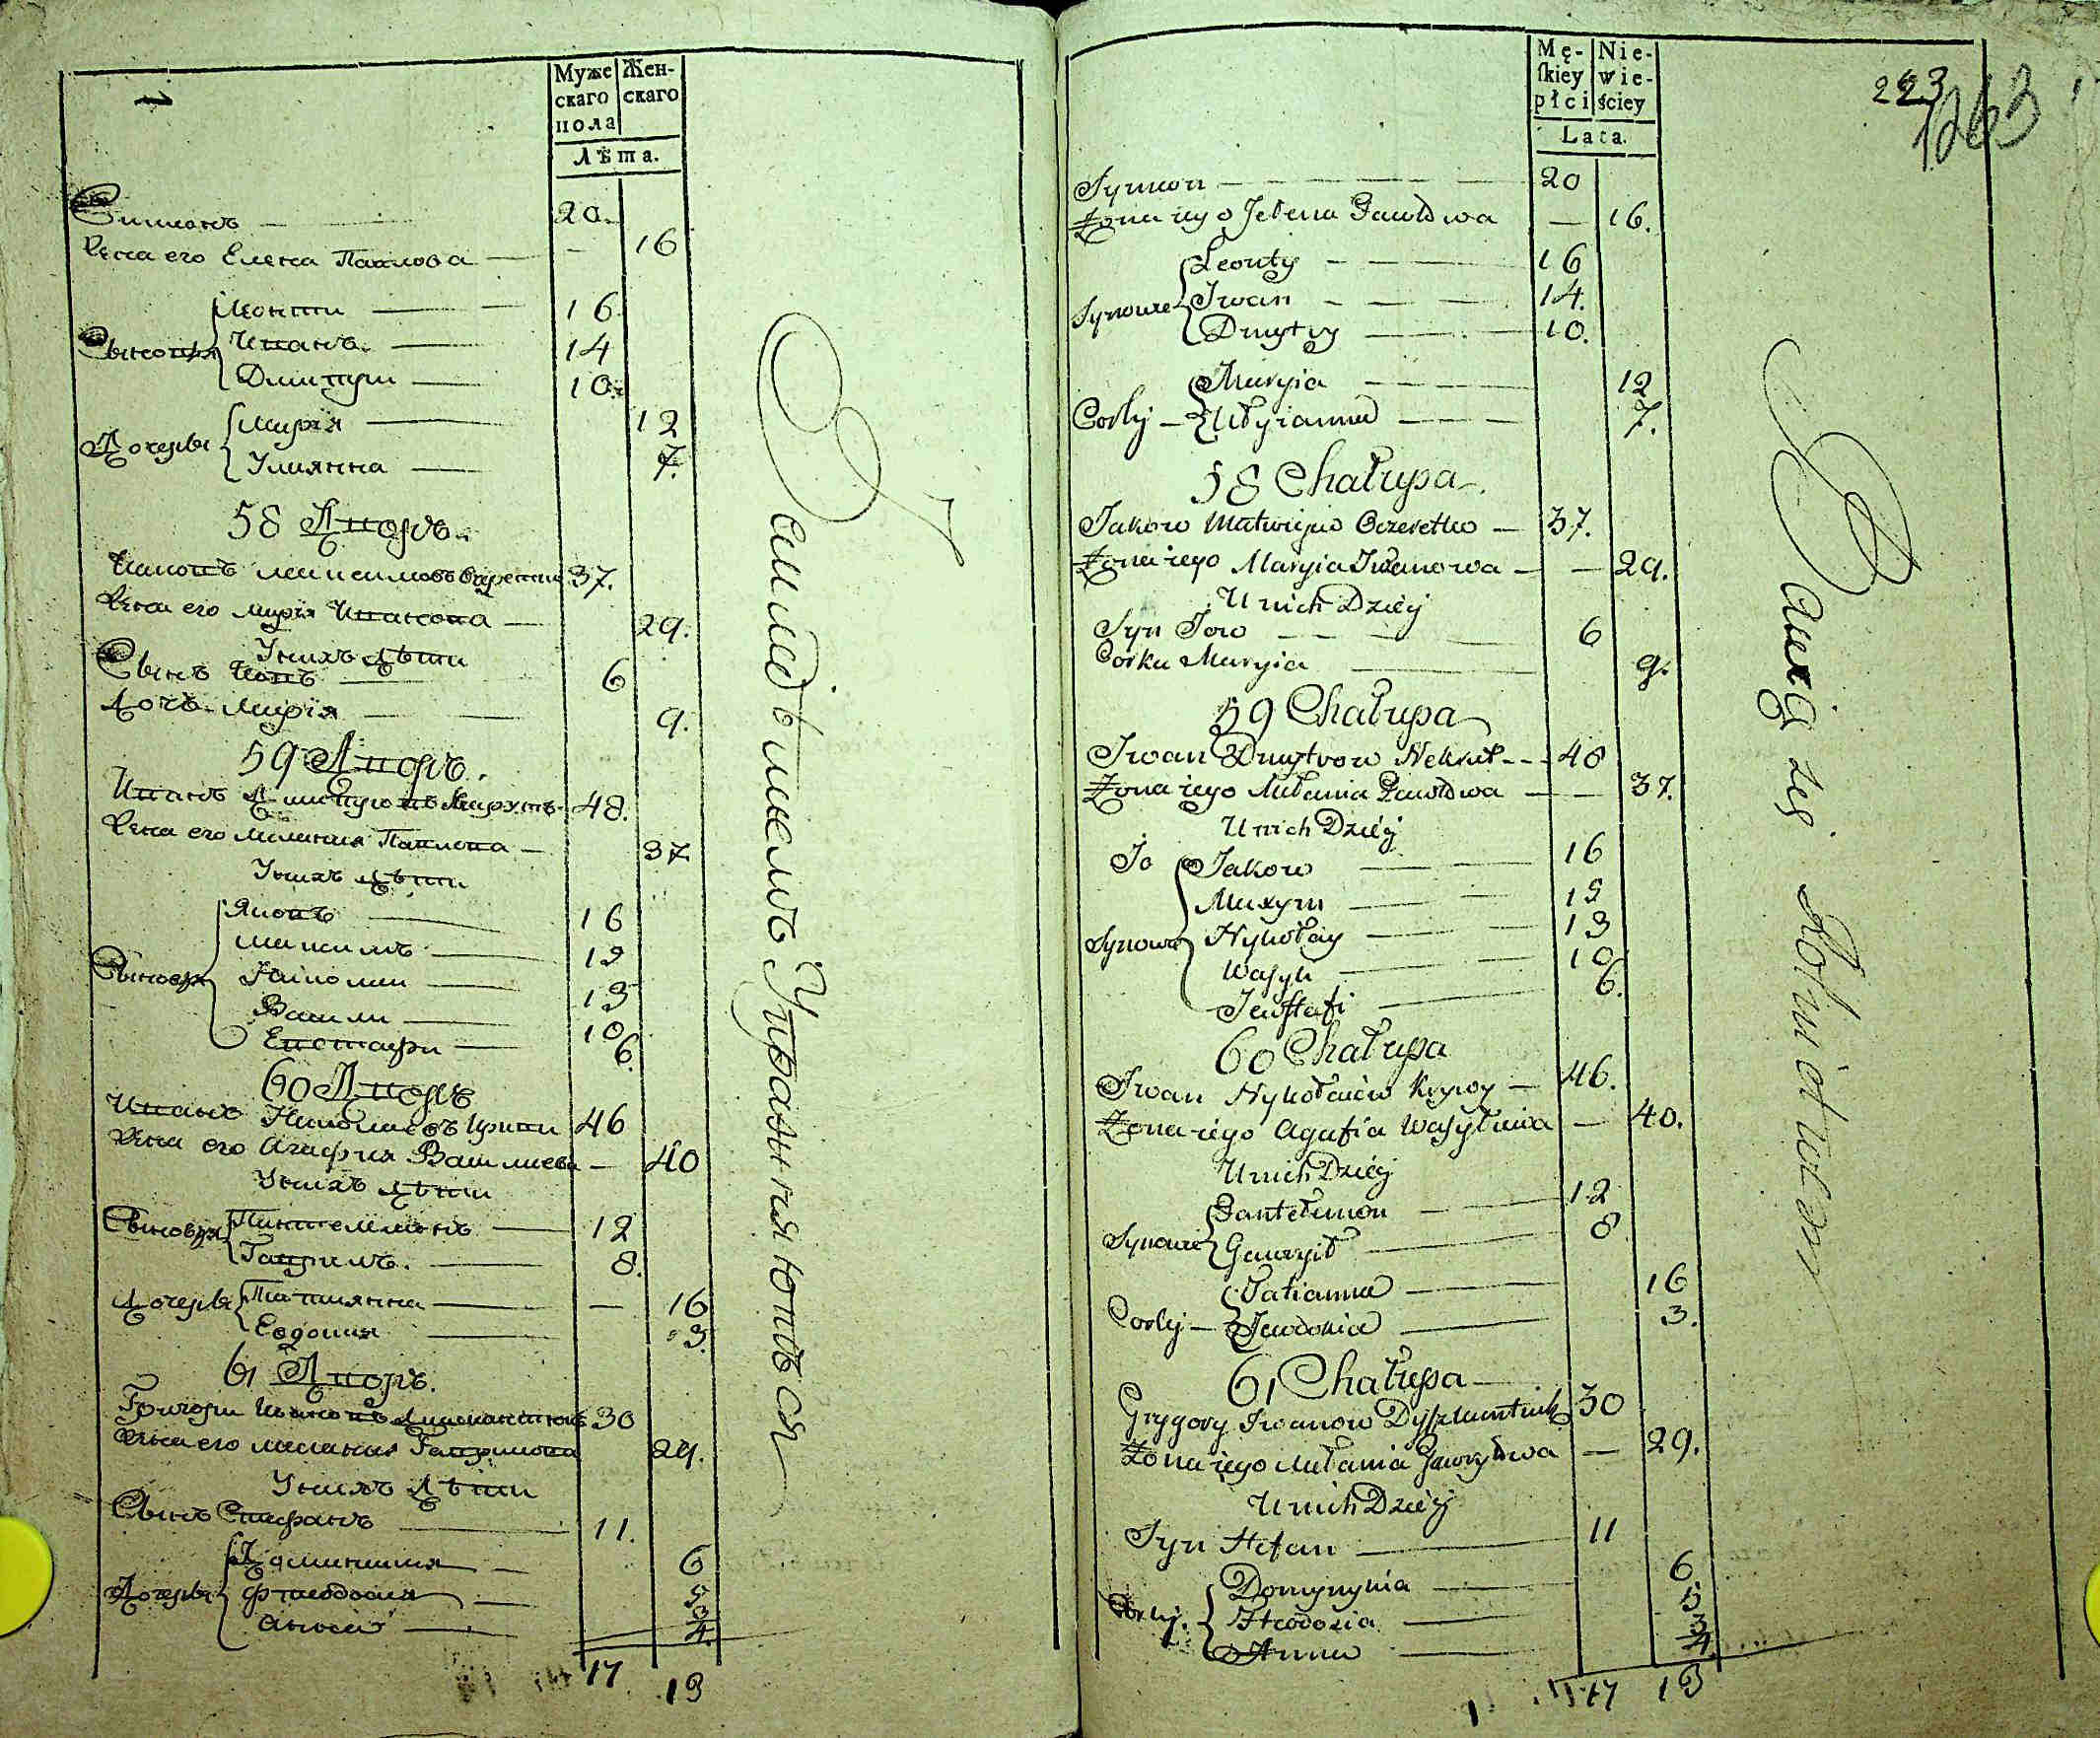 Муже
скаго
пола
Жен-
скаго
Лѣта.
Симионъ — 20.
Жена его Елена Павлова — 16
Сыновья
Леонти — 16.
Иванъ — 14
Дмитри — 10.
Дочерьи
Мария — 12
Улиянна — 7.
58 Дворъ.
37.
Жена его Мария Иванова — 29.
У нихъ дѣти
Сынъ Иовъ — 6
Дочь Мария — 9.
59 Дворъ.
Иванъ 48.
Жена его Мелания Павлова — 37
У нихъ дѣти
Сыновья
Яковъ — 16
Максимъ — 15
Николаи — 13
Васили — 10
Евстафи — 6.
60 Дворъ
Иванъ Николаевъ Криви 46
Жена его Агафия Василиева — 40
У нихъ дѣти
Сыновья
Пантелимонъ — 12
Гавриилъ. — 8.
Дочерьи
Татиянна — 16
Евдокия — 3.
61 Дворъ.
Григори Ивановъ 30
Жена его Мелания Гаврилова 29.
У нихъ дѣти
Сынъ Стефанъ — 11.
Дочерьи
Доминикия — 6
Феодосия — 5
Анна — 4.
17 13
Землед ѣлиемъ Упражняютъся
Mę-
ſkiey
płci
Nie-
wie-
ściey
Lata.
223
1263
Symion — 20
Żona iego Jelena Pawłowa — 16.
Synowie
Leonty — 16
Iwan — 14.
Dmytry — 10.
Corki
Maryia — 12
Ulyianna — 7.
58 Chałupa.
Jakow Matwijew Oczeretko — 37.
Żona iego Maryia Iwanowa — 29.
U nich Dzieci
Syn Iow — 6
Corka Maryia — 9.
59 Chałupa
Iwan Dmytrow Nekrut — 48
Żona iego Mełania Pawłowa — 37.
U nich Dzieci
Jo
Synowie
Jakow — 16
Maxym — 15
Nykołay — 13
Wasyli — 10
Jewstafi — 6.
60 Chałupa
Iwan Nykołaiow Krywy — 46.
Żona iego Agafia Wasylowa — 40.
U nich Dzieci
Synowie
Pantełimon — 12
Gawrył — 8
Corki
Tatianna — 16
Jewdokia — 3.
61 Chałupa
Grygory Iwanow 30
Żona iego Mełania Gawryłowa — 29.
U nich Dzieci
Syn Stefan — 11
Corki.
Domynykia — 6.
Fteodozia — 5
Anna — 4
17 13
Bawią się Rolnictwem